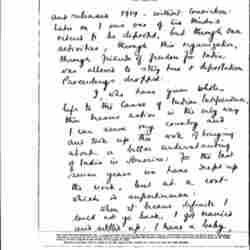 and released 1919 - without conviction.
Later on I was one of six Hindus
ordered to be deported, but through our
activities, through this organization,
through friends of freedom for India
was allowed to stay here & deportation
Proceedings dropped.
I who have given whole
life to the cause of Indian Independence
then means action in the only way
I can serve my country and
and took up this work of bringing
about a better understanding
of India in America. For the last
seven years we have kept up
the work, but at a cost-
which is
When it became definite I
could not go back, I got married
and settled up, I have a baby,